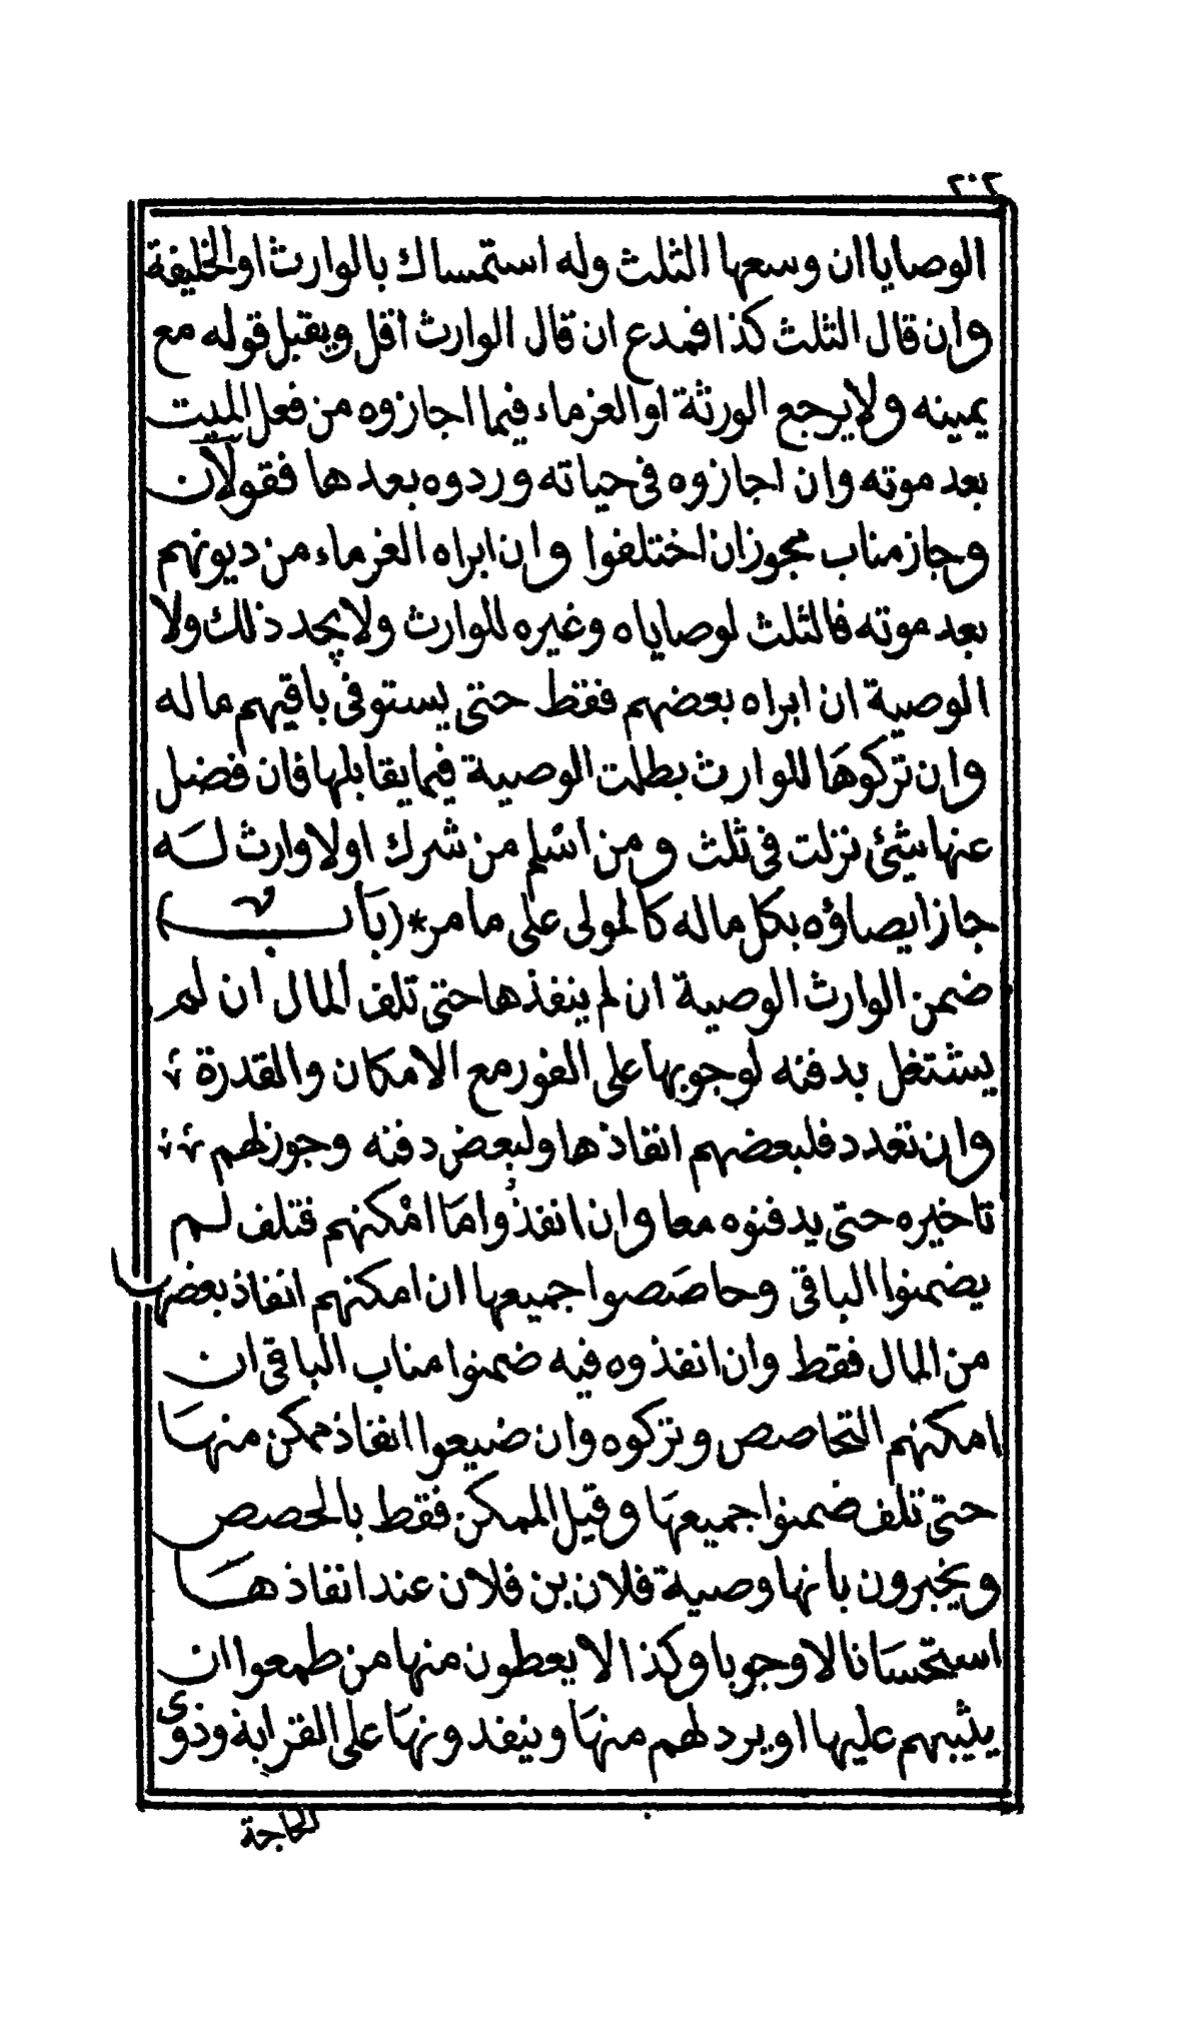 ٢٠٢
الوصايا ان وسعها الثلث وله استمساك بالوارث او الخليفة
وان قال الثلث كذا فمدع ان قال الوارث اقل ويقبل قوله مع
يمينه ولا يرجع الورثة او الغرماء فيما اجازوه من فعل الميت
بعد موته وان اجازوه في حياته وردوه بعدها فقولان
وجاز مناب مجوز ان اختلفوا وان ابراه الغرماء من ديونهم
بعد موته فالثلث لوصاياه وغيره للوارث ولا يجد ذلك ولا
الوصية ان ابراه بعضهم فقط حتى يستوفي باقيهم ماله
وان تركوهَا للوارث بطلت الوصية فيما يقابلها فان فضل
عنها شئ نزلت في ثلث ومن اسْلم من شرك او لا وارث لَه
جاز ايصاؤه بكل ماله كالمولى على ما مر * (بَاب)
ضمن الوارث الوصية ان لم ينفذها حتى تلف المال ان لم
يشتغل بدفنه لوجوبها على الفور مع الامكان والقدرة
وان تعدد فلبعضهم انفاذها ولبعض دفنه وجوز لهم
تاخيره حتى يدفنوه معا وان انفذُوا مَا امْكنهم فتلف لم
يضمنوا الباقي وحاصَصوا جميعها ان امكنهم انفاذ بعضها
من المال فقط وان انفذوه فيه ضمنوا مناب الباقي ان
امكنهم التحاصص وتركوه وان ضيعوا انفاذ ممكن منهَا
حتى تلف ضمنوا جميعهَا وقيل الممكن فقط بالحصص
ويخبرون بانها وصية فلان بن فلان عند انفاذهَا
استحسَانا لا وجوبا وكذا لا يعطون منها من طمعوا ان
يثيبهم عليها او يرد لهم منهَا وينفدونهَا على القرابة وذوى
الحاجة